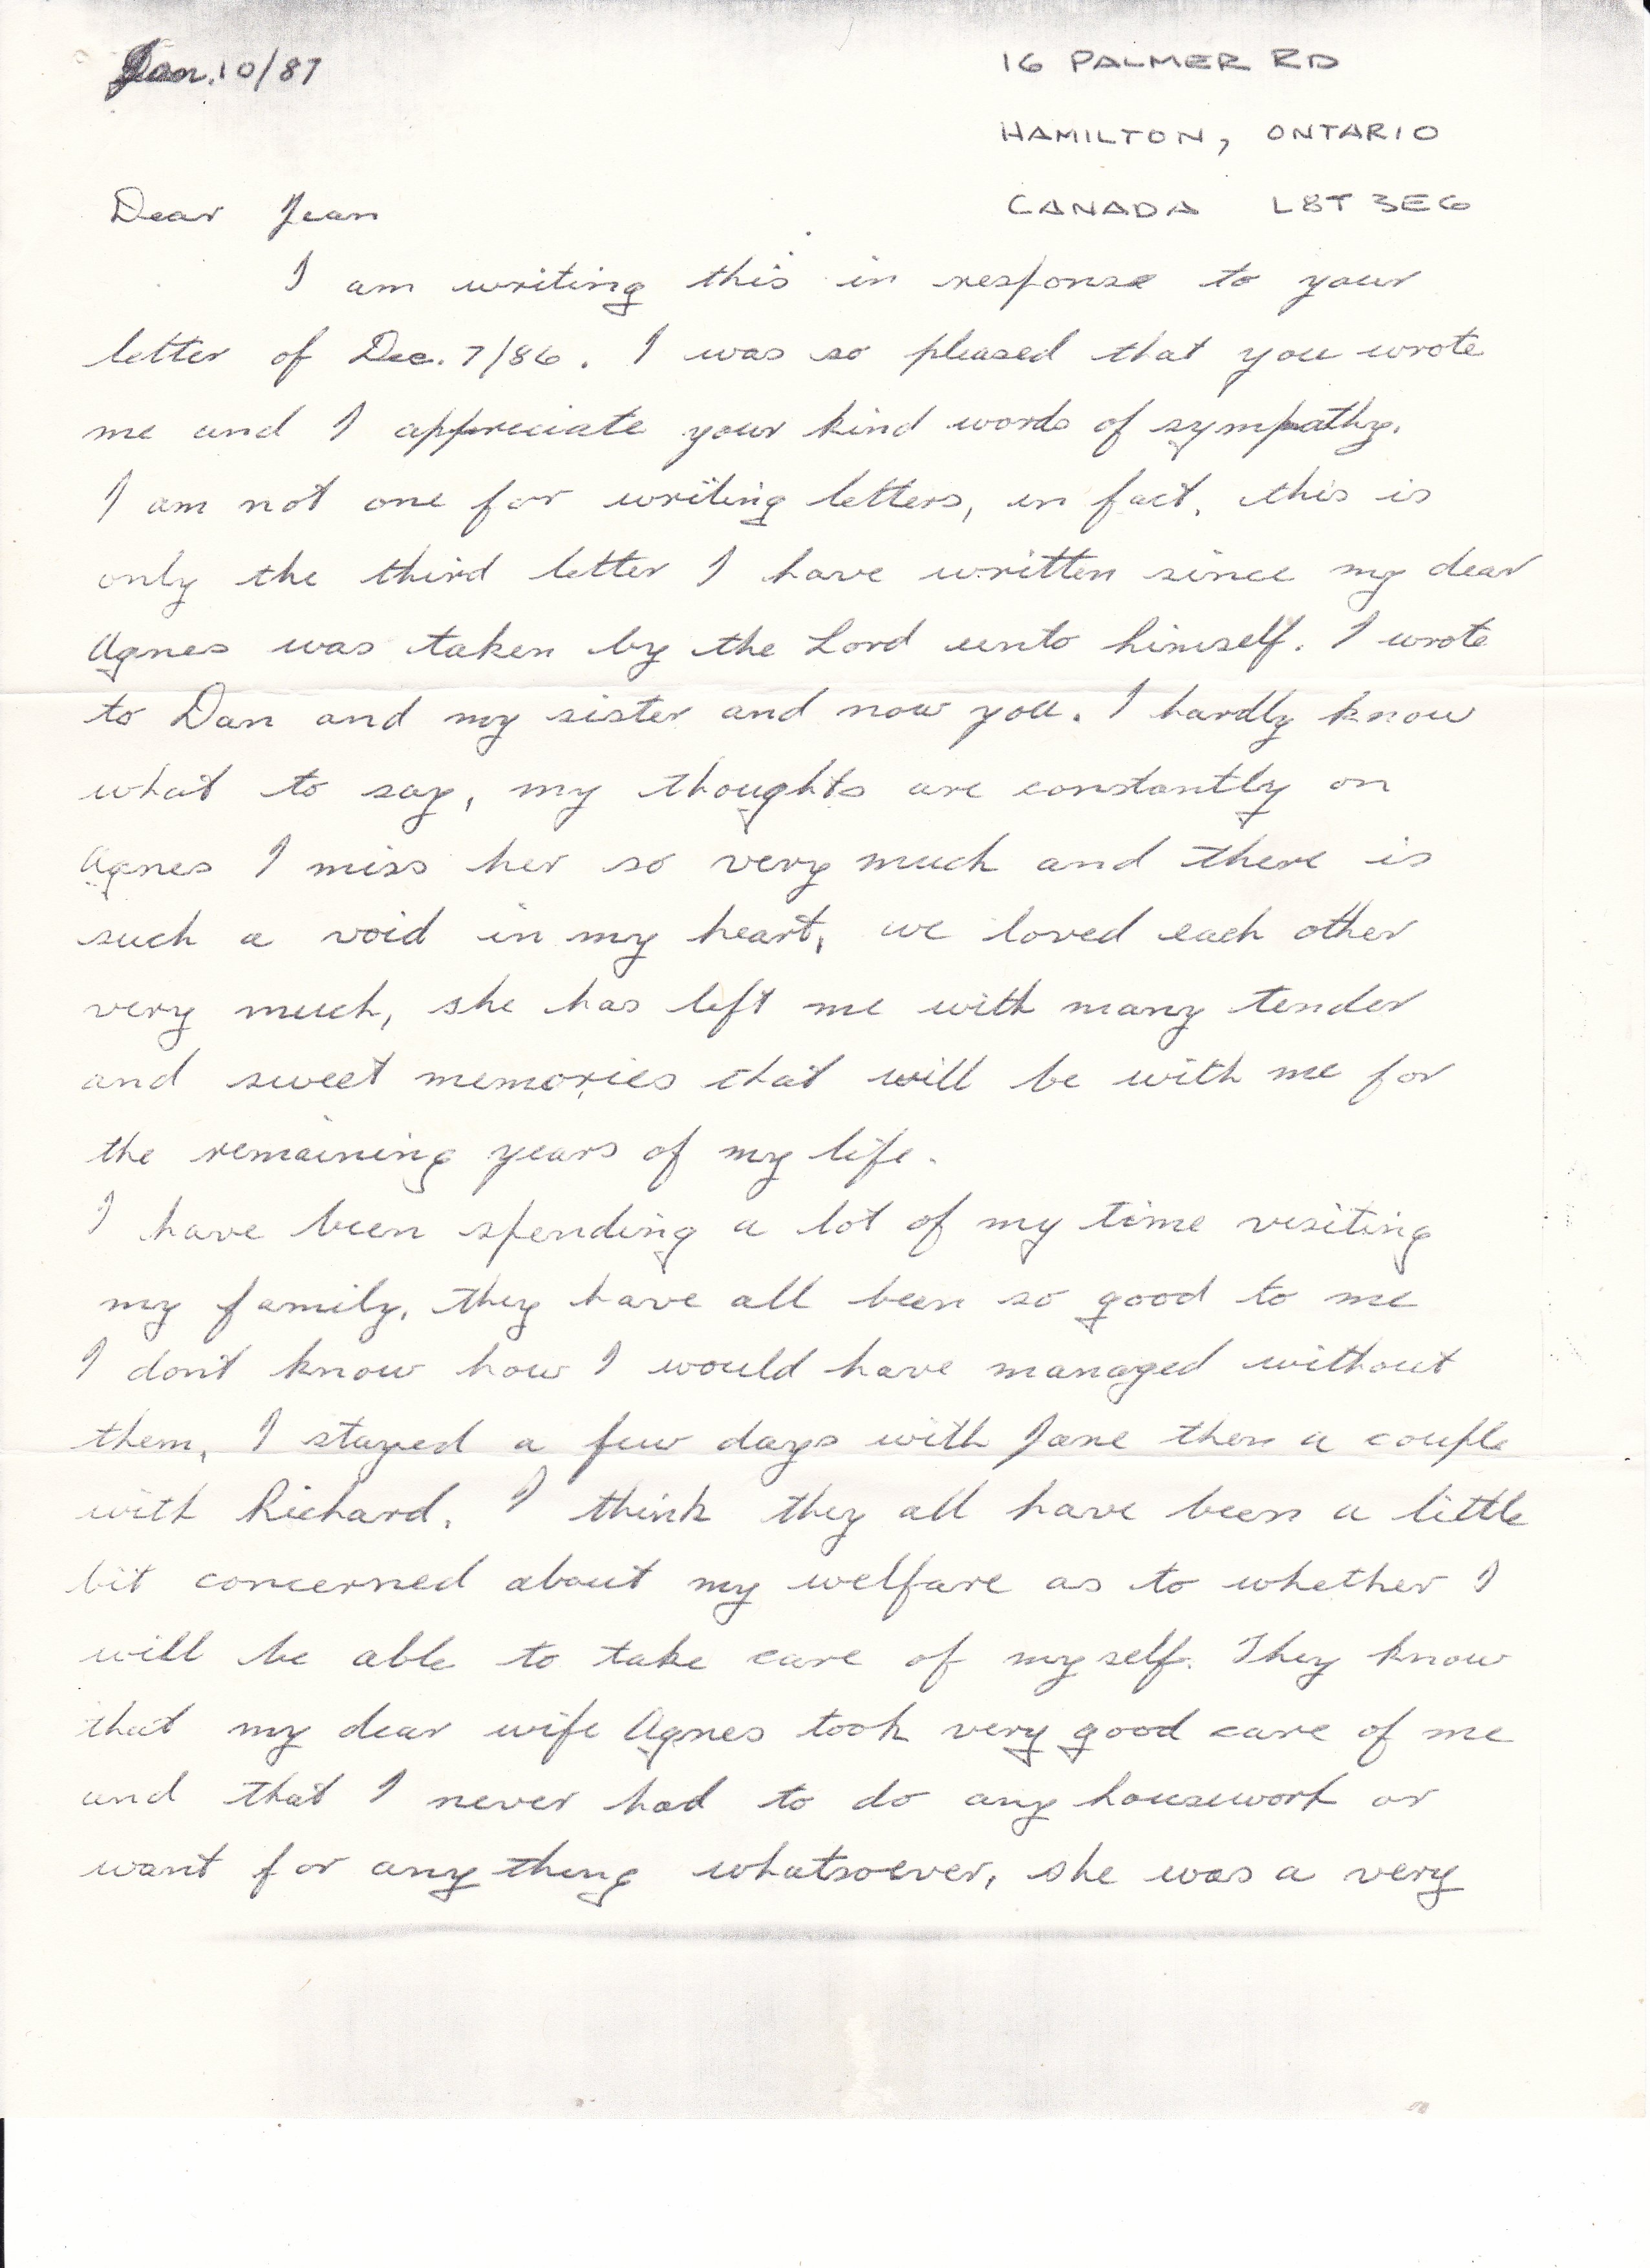 Jan. 10/87
16 PALMER RD
HAMILTON, ONTARIO
CANADA L8T 3E6
Dear Jean
I am writing this in response to your
letter of Dec. 7/86. I was so pleased that you wrote
me and I appreciate your kind words of sympathy.
I am not one for writing letters, in fact, this is
only the third letter I have written since my dear
Agnes was taken by the Lord unto himself. I wrote
to Dan and my sister and now you. I hardly know
what to say, my thoughts are constantly on
Agnes I miss her so very much and there is
such a void in my heart, we loved each other
very much, she has left me with many tender
and sweet memories that will be with me for
the remaining years of my life.
I have been spending a lot of my time visiting
my family, they have all been so good to me
I don't know how I would have managed without
them, I stayed a few days with Jane then a couple
with Richard. I think they all have been a little
bit concerned about my welfare as to whether I
will be able to take care of my self. They know
that my dear wife Agnes took very good care of me
and that I never had to do any housework or
want for any thing whatsoever, she was a very